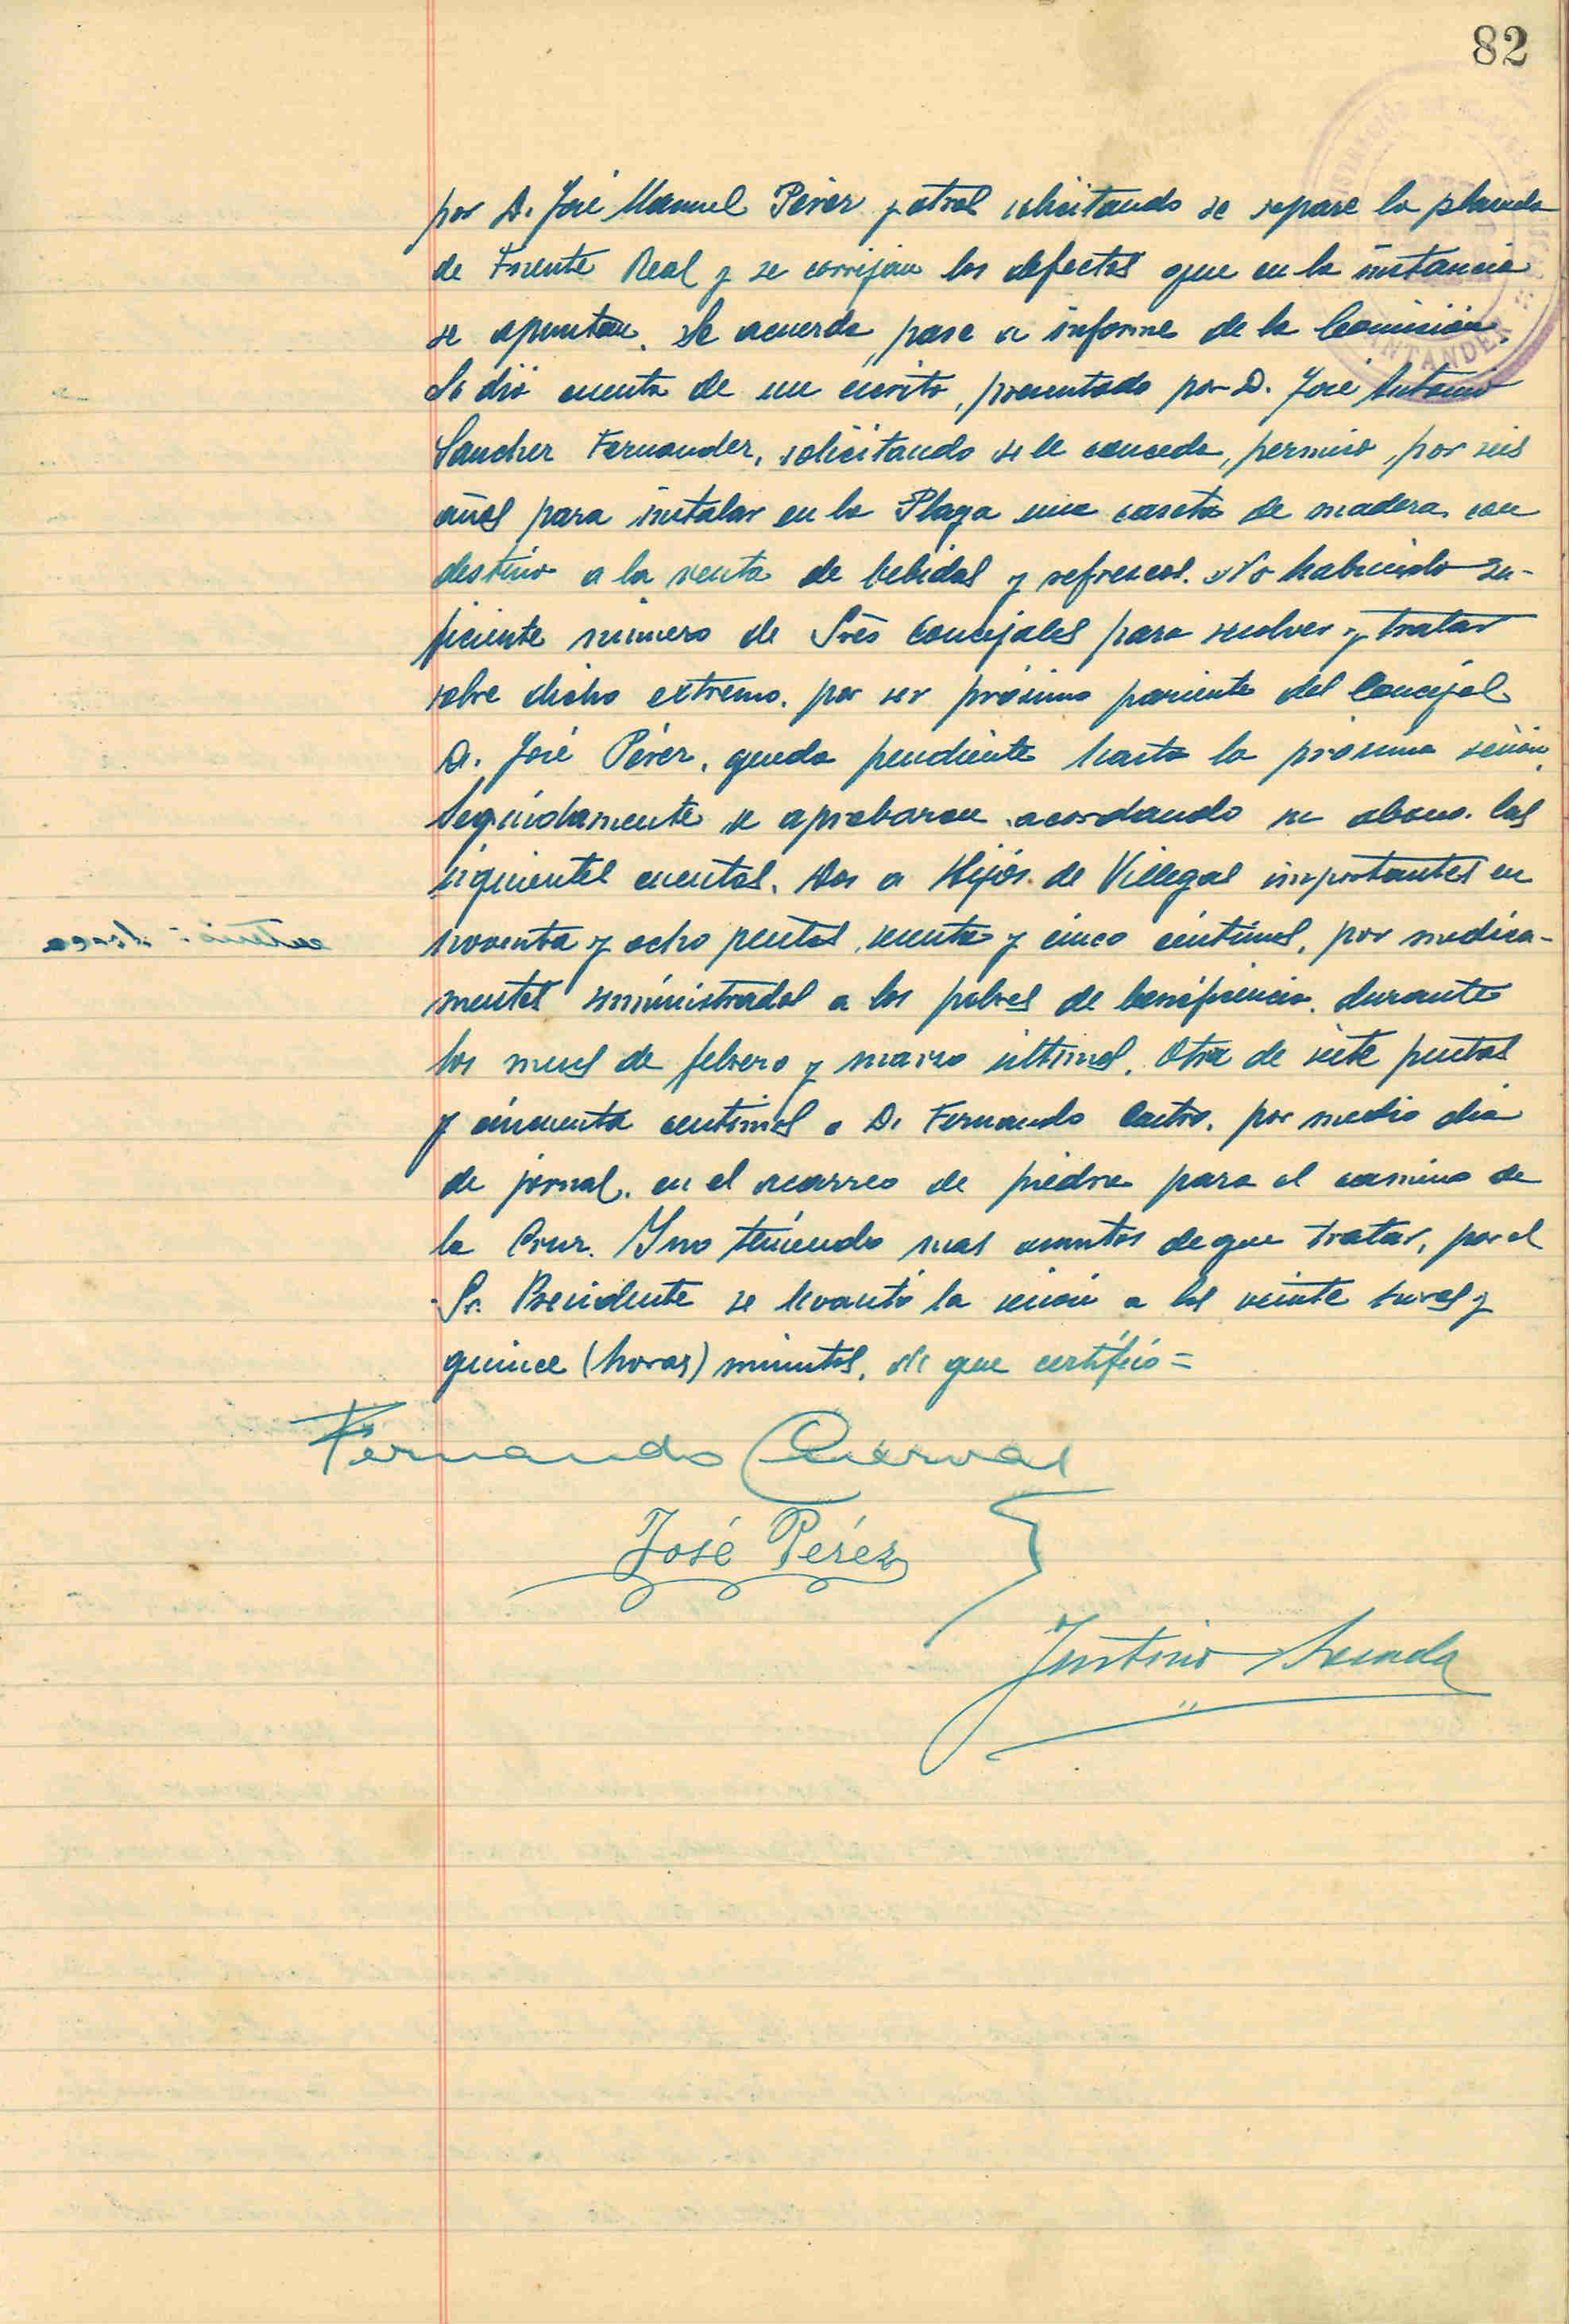 82
por D. José Manuel Pérez y otros solicitando se repare la
de Fuente Real y se corrijan los defectos que en la instancia
se apuntan. Se acuerda, pase a informe de la Comisión.
Se dió cuenta de un escrito, presentado por D. José Antonio
Sanchez Fernandez, solicitando se le conceda, permiso, por seis
años para instalar en la Playa una caseta de madera con
destino a la venta de bebidas y refrescos. No habiendo su-
ficiente número de Sres Concejales para resolver y tratar
sobre dicho extremo, por ser próximo pariente del Concejal
D. José Pérez, queda pendiente hasta la próxima sesión.
Seguidamente se aprobaron acordando su abono las
siguientes cuentas. Dos a Hijos de Villegas importantes en
noventa y ocho pesetas, sesenta y cinco céntimos, por medica-
mentos suministrados a los pobres de beneficencia, durante
los meses de febrero y marzo últimos. Otra de siete pesetas
y cincuenta centimos a D. Fernando Castro, por medio dia
de jornal, en el acarreo de piedra para el camino de
la Cruz. Y no teniendo mas asuntos de que tratar, por el
Sr. Presidente se levantó la sesión a las veinte horas y
quince (horas) minutos, de que certifico =
Fernando Cuervas
José Pérez
Justino
SANTANDER